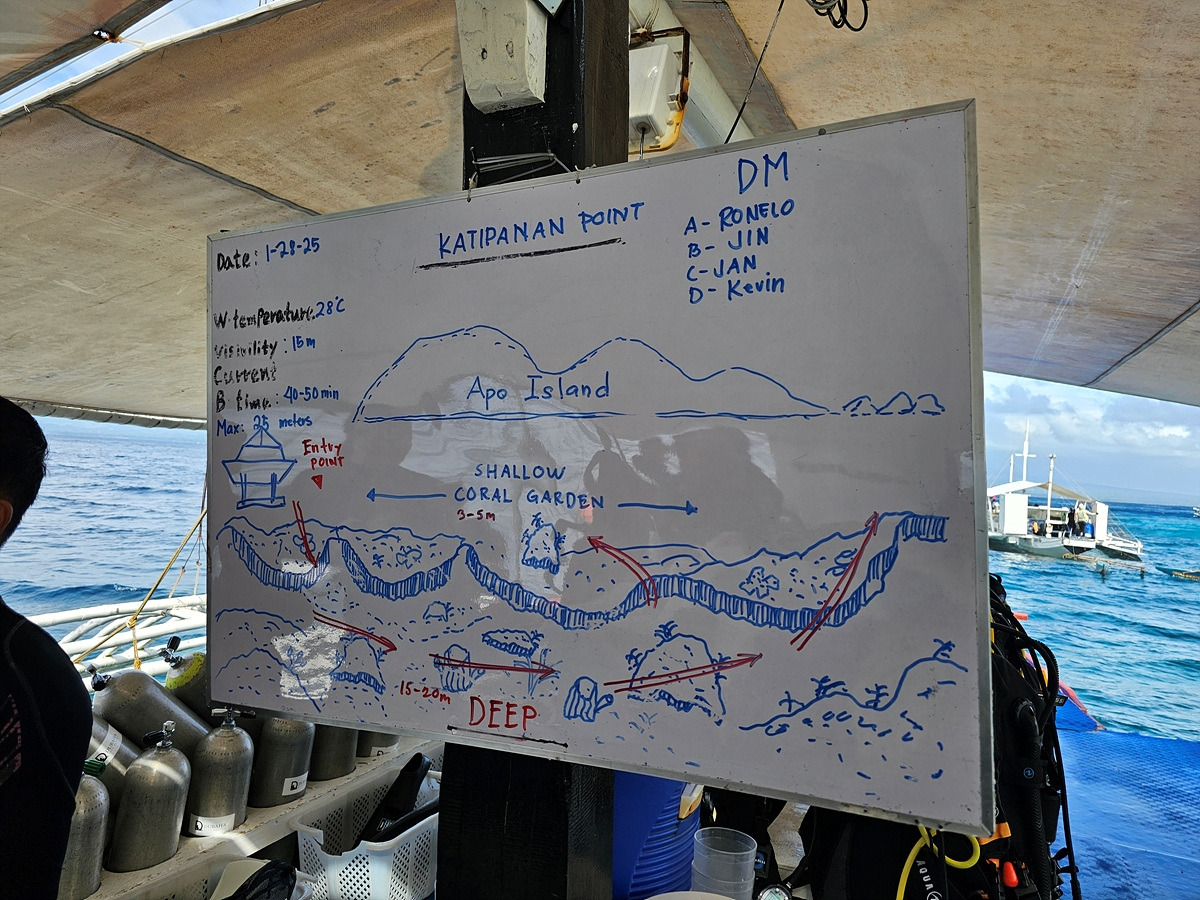 Date: 1-28-25
KATIPANAN POINT
DM
A- RONELO
B- JIN
C-JAN
D- Kevin
W-temperature: 28°C
Visibility: 15m
Current
B-time: 40-50min
Max: 25 meters
Apo Island
Entry
POINT
SHALLOW
CORAL GARDEN
3-5m
15-20m
DEEP
AQUA